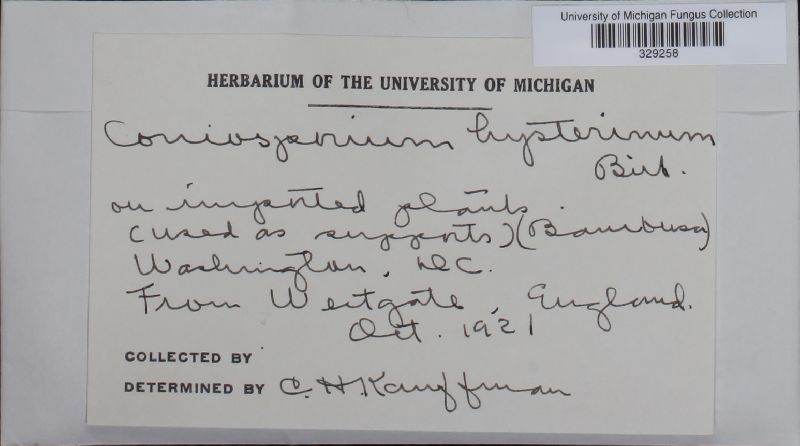 University of Michigan Fungus Collection
329258
HERBARIUM OF THE UNIVERSITY OF MICHIGAN
Coniosporium hysterinum
Bub.
on imported plants
(used as supports) (Bambusa)
Washington, D.C.
From Westgate, England.
Oct. 1921
COLLECTED BY
DETERMINED BY C. H. Kauffman